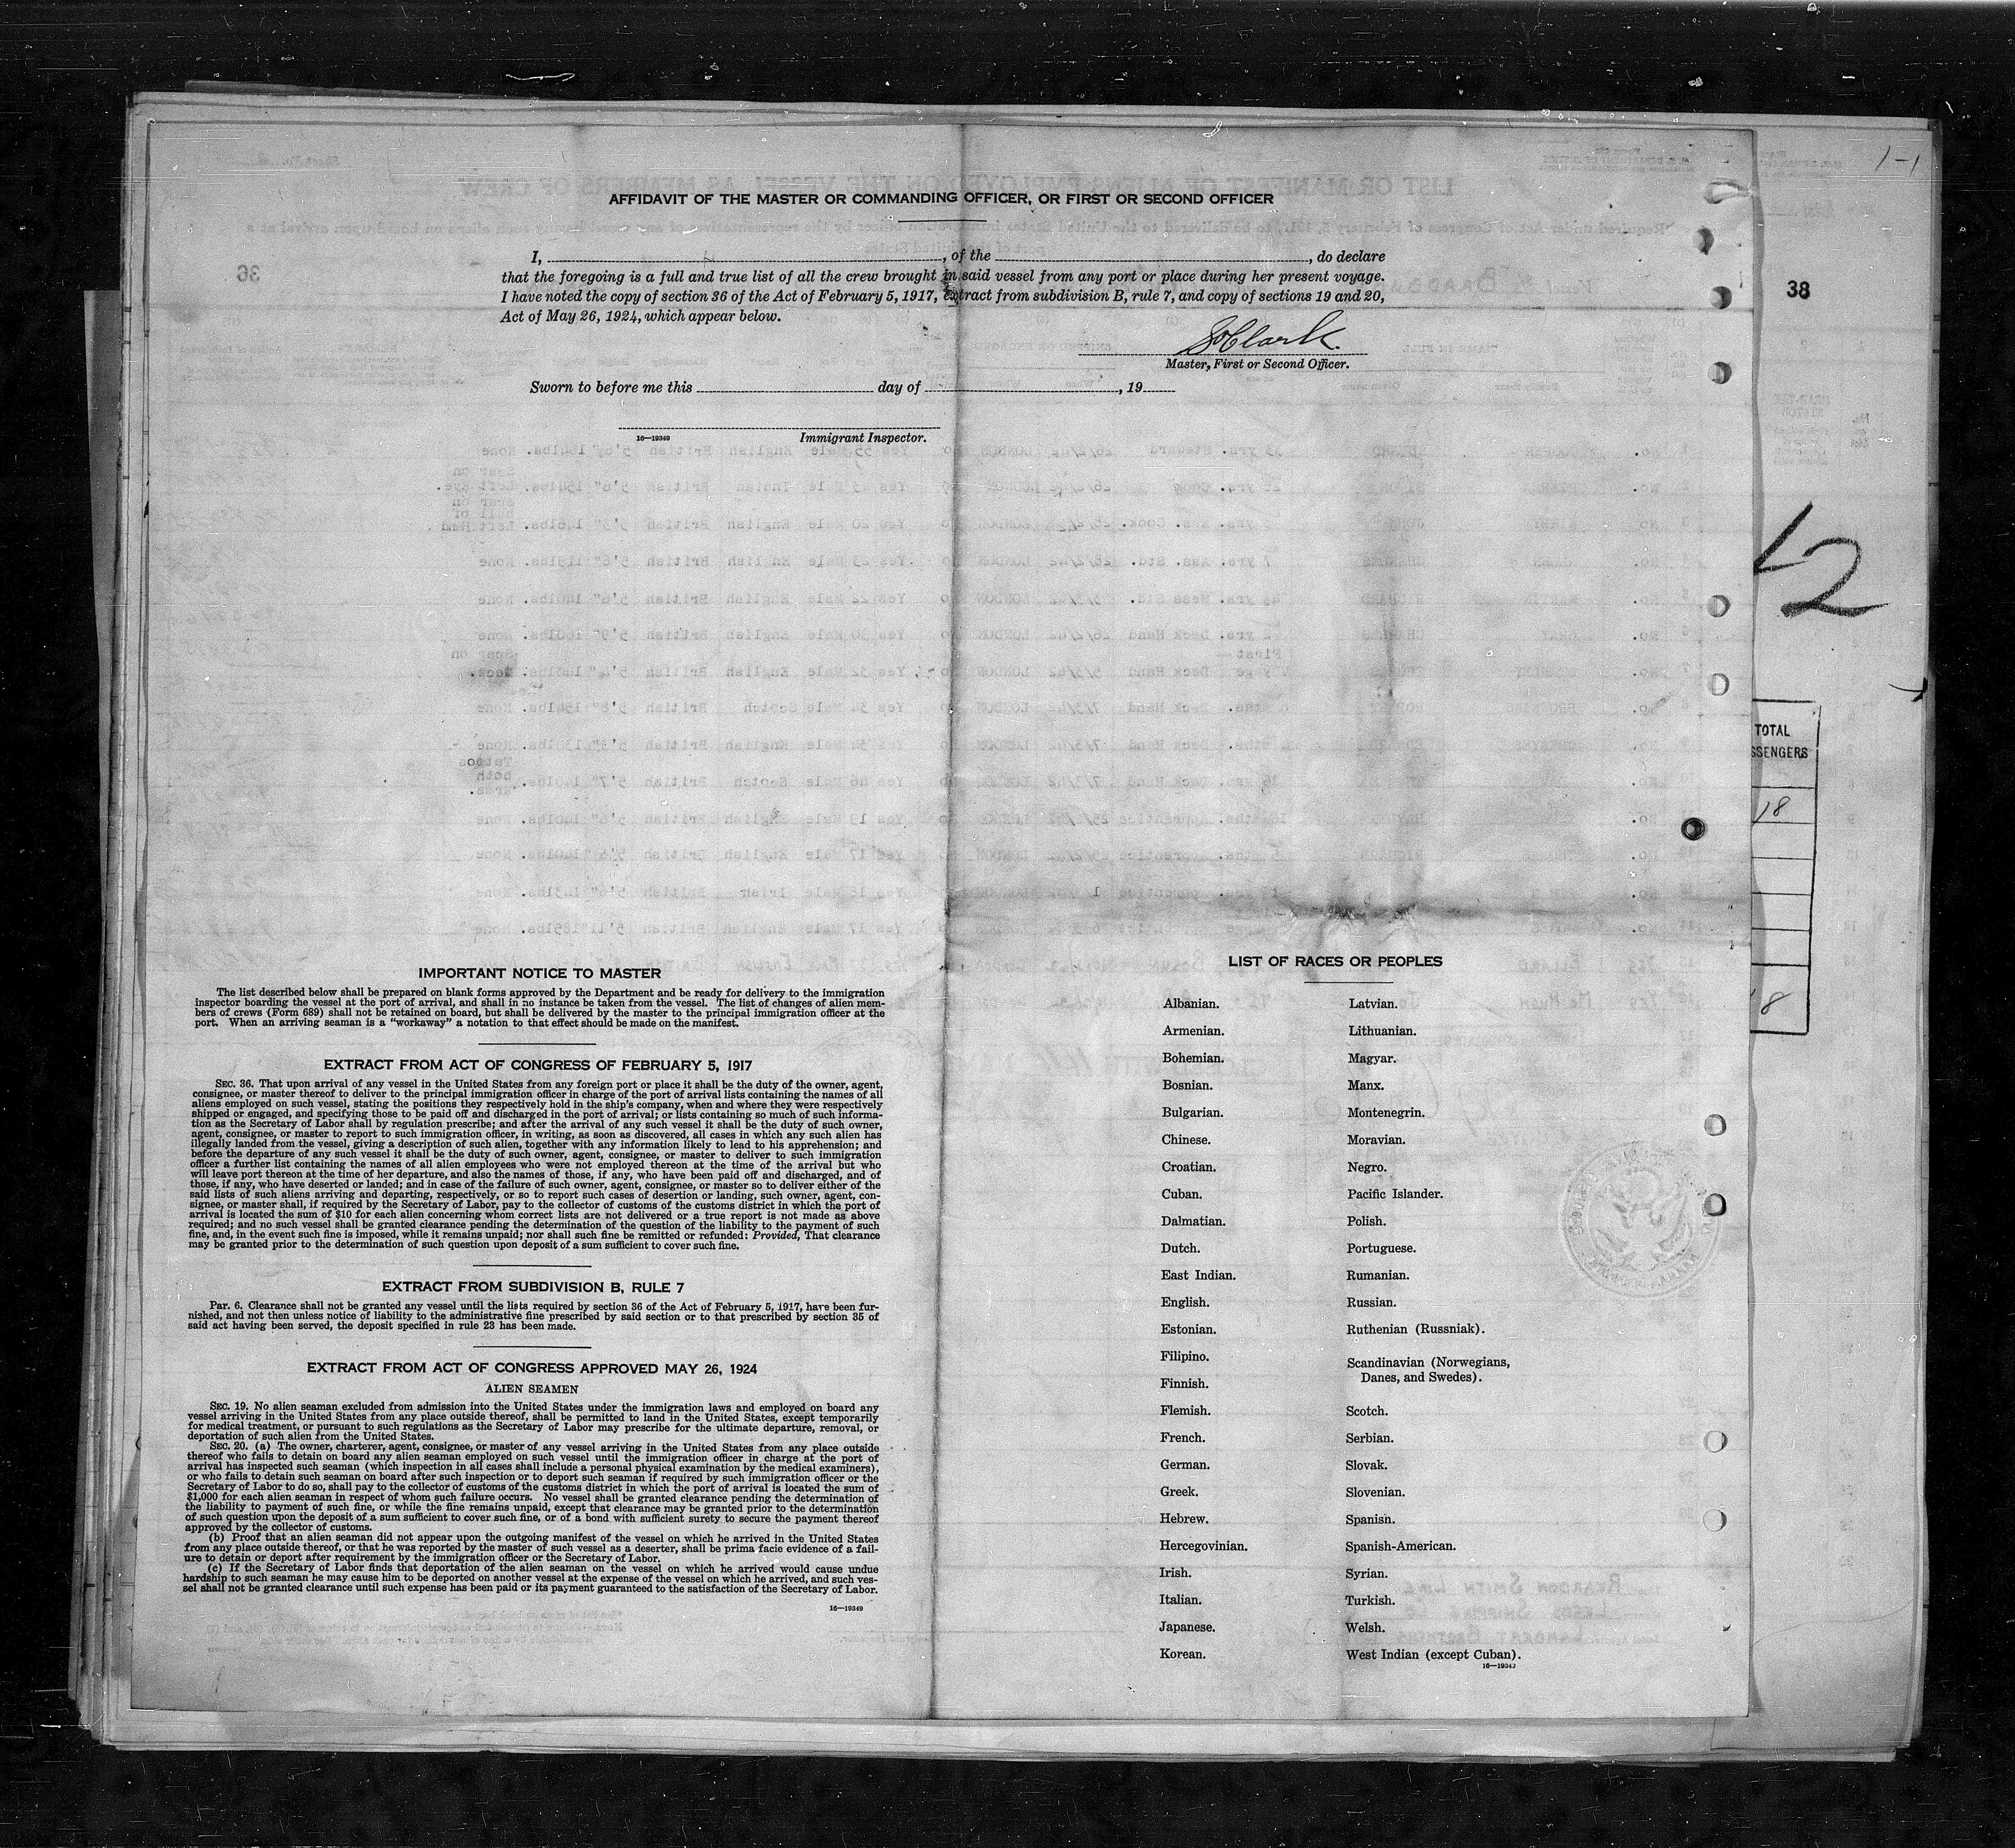 1-1
AFFIDAVIT OF THE MASTER OR COMMANDING OFFICER, OR FIRST OR SECOND OFFICER
I, , of the , do declare
that the foregoing is a full and true list of all the crew brought in said vessel from any port or place during her present voyage.
I have noted the copy of section 36 of the Act of February 5, 1917, extract from subdivision B, rule 7, and copy of sections 19 and 20,
Act of May 26, 1924, which appear below.
38
Clark.
Master, First or Second Officer.
Sworn to before me this day of , 19
16—19349 Immigrant Inspector.
12
TOTAL
SSENGERS
18
8
IMPORTANT NOTICE TO MASTER
The list described below shall be prepared on blank forms approved by the Department and be ready for delivery to the immigration
inspector boarding the vessel at the port of arrival, and shall in no instance be taken from the vessel. The list of changes of alien mem-
bers of crews (Form 689) shall not be retained on board, but shall be delivered by the master to the principal immigration officer at the
port. When an arriving seaman is a "workaway" a notation to that effect should be made on the manifest.
EXTRACT FROM ACT OF CONGRESS OF FEBRUARY 5, 1917
SEC. 36. That upon arrival of any vessel in the United States from any foreign port or place it shall be the duty of the owner, agent,
consignee, or master thereof to deliver to the principal immigration officer in charge of the port of arrival lists containing the names of all
aliens employed on such vessel, stating the positions they respectively hold in the ship's company, when and where they were respectively
shipped or engaged, and specifying those to be paid off and discharged in the port of arrival; or lists containing so much of such informa-
tion as the Secretary of Labor shall by regulation prescribe; and after the arrival of any such vessel it shall be the duty of such owner,
agent, consignee, or master to report to such immigration officer, in writing, as soon as discovered, all cases in which any such alien has
illegally landed from the vessel, giving a description of such alien, together with any information likely to lead to his apprehension; and
before the departure of any such vessel it shall be the duty of such owner, agent, consignee, or master to deliver to such immigration
officer a further list containing the names of all alien employees who were not employed thereon at the time of the arrival but who
will leave port thereon at the time of her departure, and also the names of those, if any, who have been paid off and discharged, and of
those, if any, who have deserted or landed; and in case of the failure of such owner, agent, consignee, or master so to deliver either of the
said lists of such aliens arriving and departing, respectively, or so to report such cases of desertion or landing, such owner, agent, con-
signee, or master shall, if required by the Secretary of Labor, pay to the collector of customs of the customs district in which the port of
arrival is located the sum of $10 for each alien concerning whom correct lists are not delivered or a true report is not made as above
required; and no such vessel shall be granted clearance pending the determination of the question of the liability to the payment of such
fine, and, in the event such fine is imposed, while it remains unpaid; nor shall such fine be remitted or refunded: Provided, That clearance
may be granted prior to the determination of such question upon deposit of a sum sufficient to cover such fine.
EXTRACT FROM SUBDIVISION B, RULE 7
Par. 6. Clearance shall not be granted any vessel until the lists required by section 36 of the Act of February 5, 1917, have been fur-
nished, and not then unless notice of liability to the administrative fine prescribed by said section or to that prescribed by section 35 of
said act having been served, the deposit specified in rule 23 has been made.
EXTRACT FROM ACT OF CONGRESS APPROVED MAY 26, 1924
ALIEN SEAMEN
SEC. 19. No alien seaman excluded from admission into the United States under the immigration laws and employed on board any
vessel arriving in the United States from any place outside thereof, shall be permitted to land in the United States, except temporarily
for medical treatment, or pursuant to such regulations as the Secretary of Labor may prescribe for the ultimate departure, removal, or
deportation of such alien from the United States.
SEC. 20. (a) The owner, charterer, agent, consignee, or master of any vessel arriving in the United States from any place outside
thereof who fails to detain on board any alien seaman employed on such vessel until the immigration officer in charge at the port of
arrival has inspected such seaman (which inspection in all cases shall include a personal physical examination by the medical examiners),
or who fails to detain such seaman on board after such inspection or to deport such seaman if required by such immigration officer or the
Secretary of Labor to do so, shall pay to the collector of customs of the customs district in which the port of arrival is located the sum of
$1,000 for each alien seaman in respect of whom such failure occurs. No vessel shall be granted clearance pending the determination of
the liability to payment of such fine, or while the fine remains unpaid, except that clearance may be granted prior to the determination
of such question upon the deposit of a sum sufficient to cover such fine, or of a bond with sufficient surety to secure the payment thereof
approved by the collector of customs.
(b) Proof that an alien seaman did not appear upon the outgoing manifest of the vessel on which he arrived in the United States
from any place outside thereof, or that he was reported by the master of such vessel as a deserter, shall be prima facie evidence of a fail-
ure to detain or deport after requirement by the immigration officer or the Secretary of Labor.
(c) If the Secretary of Labor finds that deportation of the alien seaman on the vessel on which he arrived would cause undue
hardship to such seaman he may cause him to be deported on another vessel at the expense of the vessel on which he arrived, and such ves-
sel shall not be granted clearance until such expense has been paid or its payment guaranteed to the satisfaction of the Secretary of Labor.
16—19349
LIST OF RACES OR PEOPLES
Albanian.
Armenian.
Bohemian.
Bosnian.
Bulgarian.
Chinese.
Croatian.
Cuban.
Dalmatian.
Dutch.
East Indian.
English.
Estonian.
Filipino.
Finnish.
Flemish.
French.
German.
Greek.
Hebrew.
Hercegovinian.
Irish.
Italian.
Japanese.
Korean.
Latvian.
Lithuanian.
Magyar.
Manx.
Montenegrin.
Moravian.
Negro.
Pacific Islander.
Polish.
Portuguese.
Rumanian.
Russian.
Ruthenian (Russniak).
Scandinavian (Norwegians,
Danes, and Swedes).
Scotch.
Serbian.
Slovak.
Slovenian.
Spanish.
Spanish-American.
Syrian.
Turkish.
Welsh.
West Indian (except Cuban).
16—19349